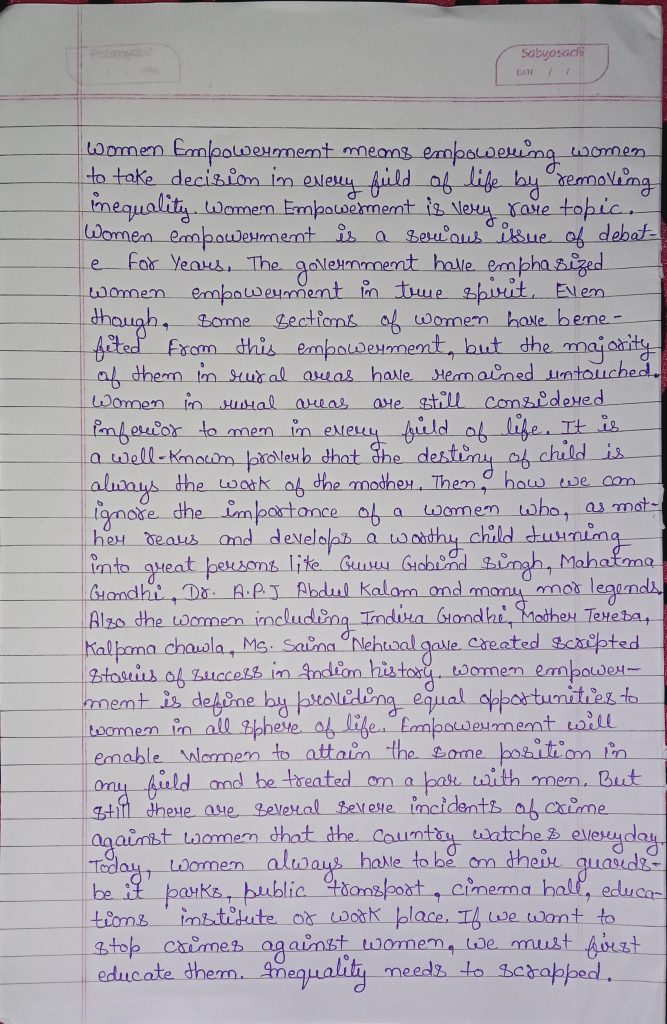 Sabyasachi
DATE / /
Women Empowerment means empowering women
to take decision in every field of life by removing
inequality. Women Empowerment is very rare topic.
Women empowerment is a serious issue of debat-
e for years. The government have emphasized
women empowerment in true spirit. Even
though, some sections of women have bene-
fited from this empowerment, but the majority
of them in rural areas have remained untouched.
Women in rural areas are still considered
inferior to men in every field of life. It is
a well-known proverb that the destiny of child is
always the work of the mother. Then, how we can
ignore the importance of a women who, as mot-
her rears and develops a worthy child turning
into great persons like Guru Gobind Singh, Mahatma
Gandhi, Dr. A.P.J Abdul Kalam and many mor legends.
Also the women including Indira Gandhi, Mother Teresa,
Kalpana chawla, Ms. Saina Nehwal gave created scripted
stories of success in Indian history. women empower-
ment is define by providing equal opportunities to
women in all sphere of life. Empowerment will
enable Women to attain the same position in
any field and be treated on a par with men. But
still there are several severe incidents of crime
against women that the country watches everyday.
Today, women always have to be on their guards-
be it parks, public transport, cinema hall, educa-
tions institute or work place. If we want to
stop crimes against women, we must first
educate them. Inequality needs to scrapped.